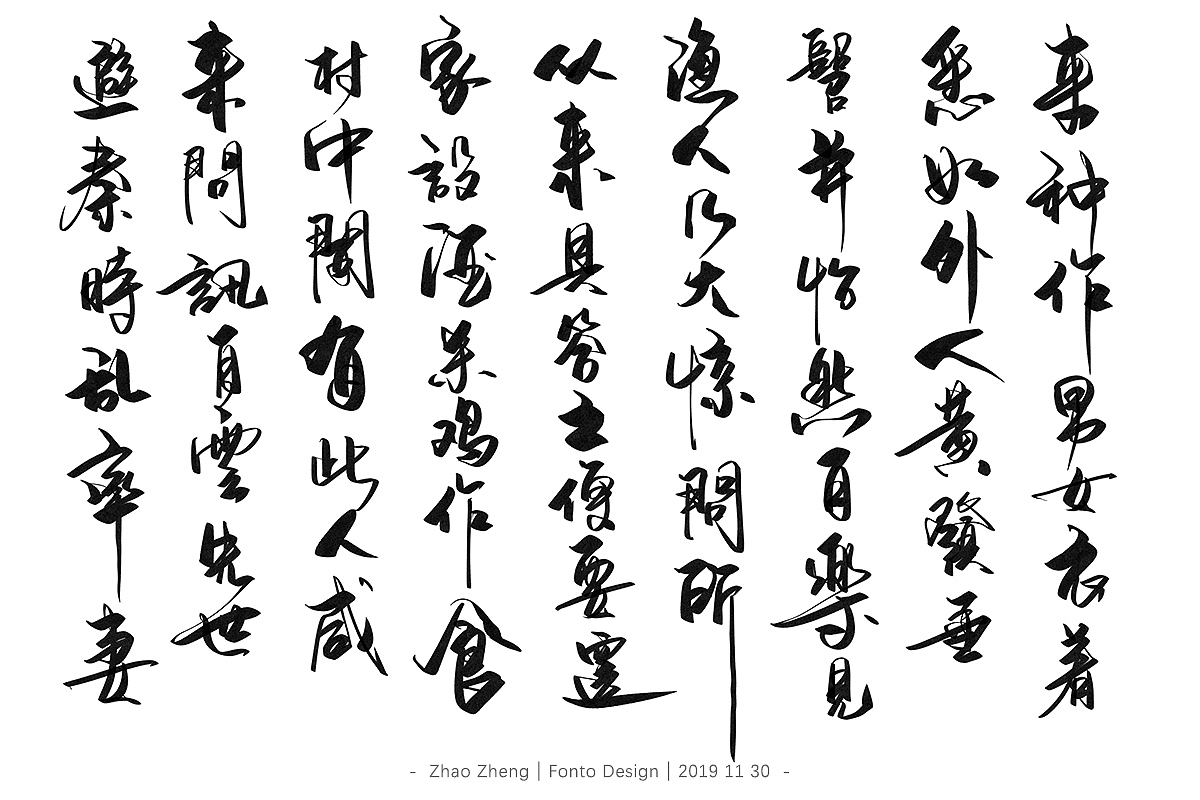 来种作男女衣着
悉如外人黃發垂
髫并怡然自樂見
渔人乃大惊問所
从来具答之便要還
家設酒杀鸡作食
村中聞有此人咸
来問訊自雲先世
避秦時乱率妻
- Zhao Zheng | Fonto Design | 2019 11 30 -